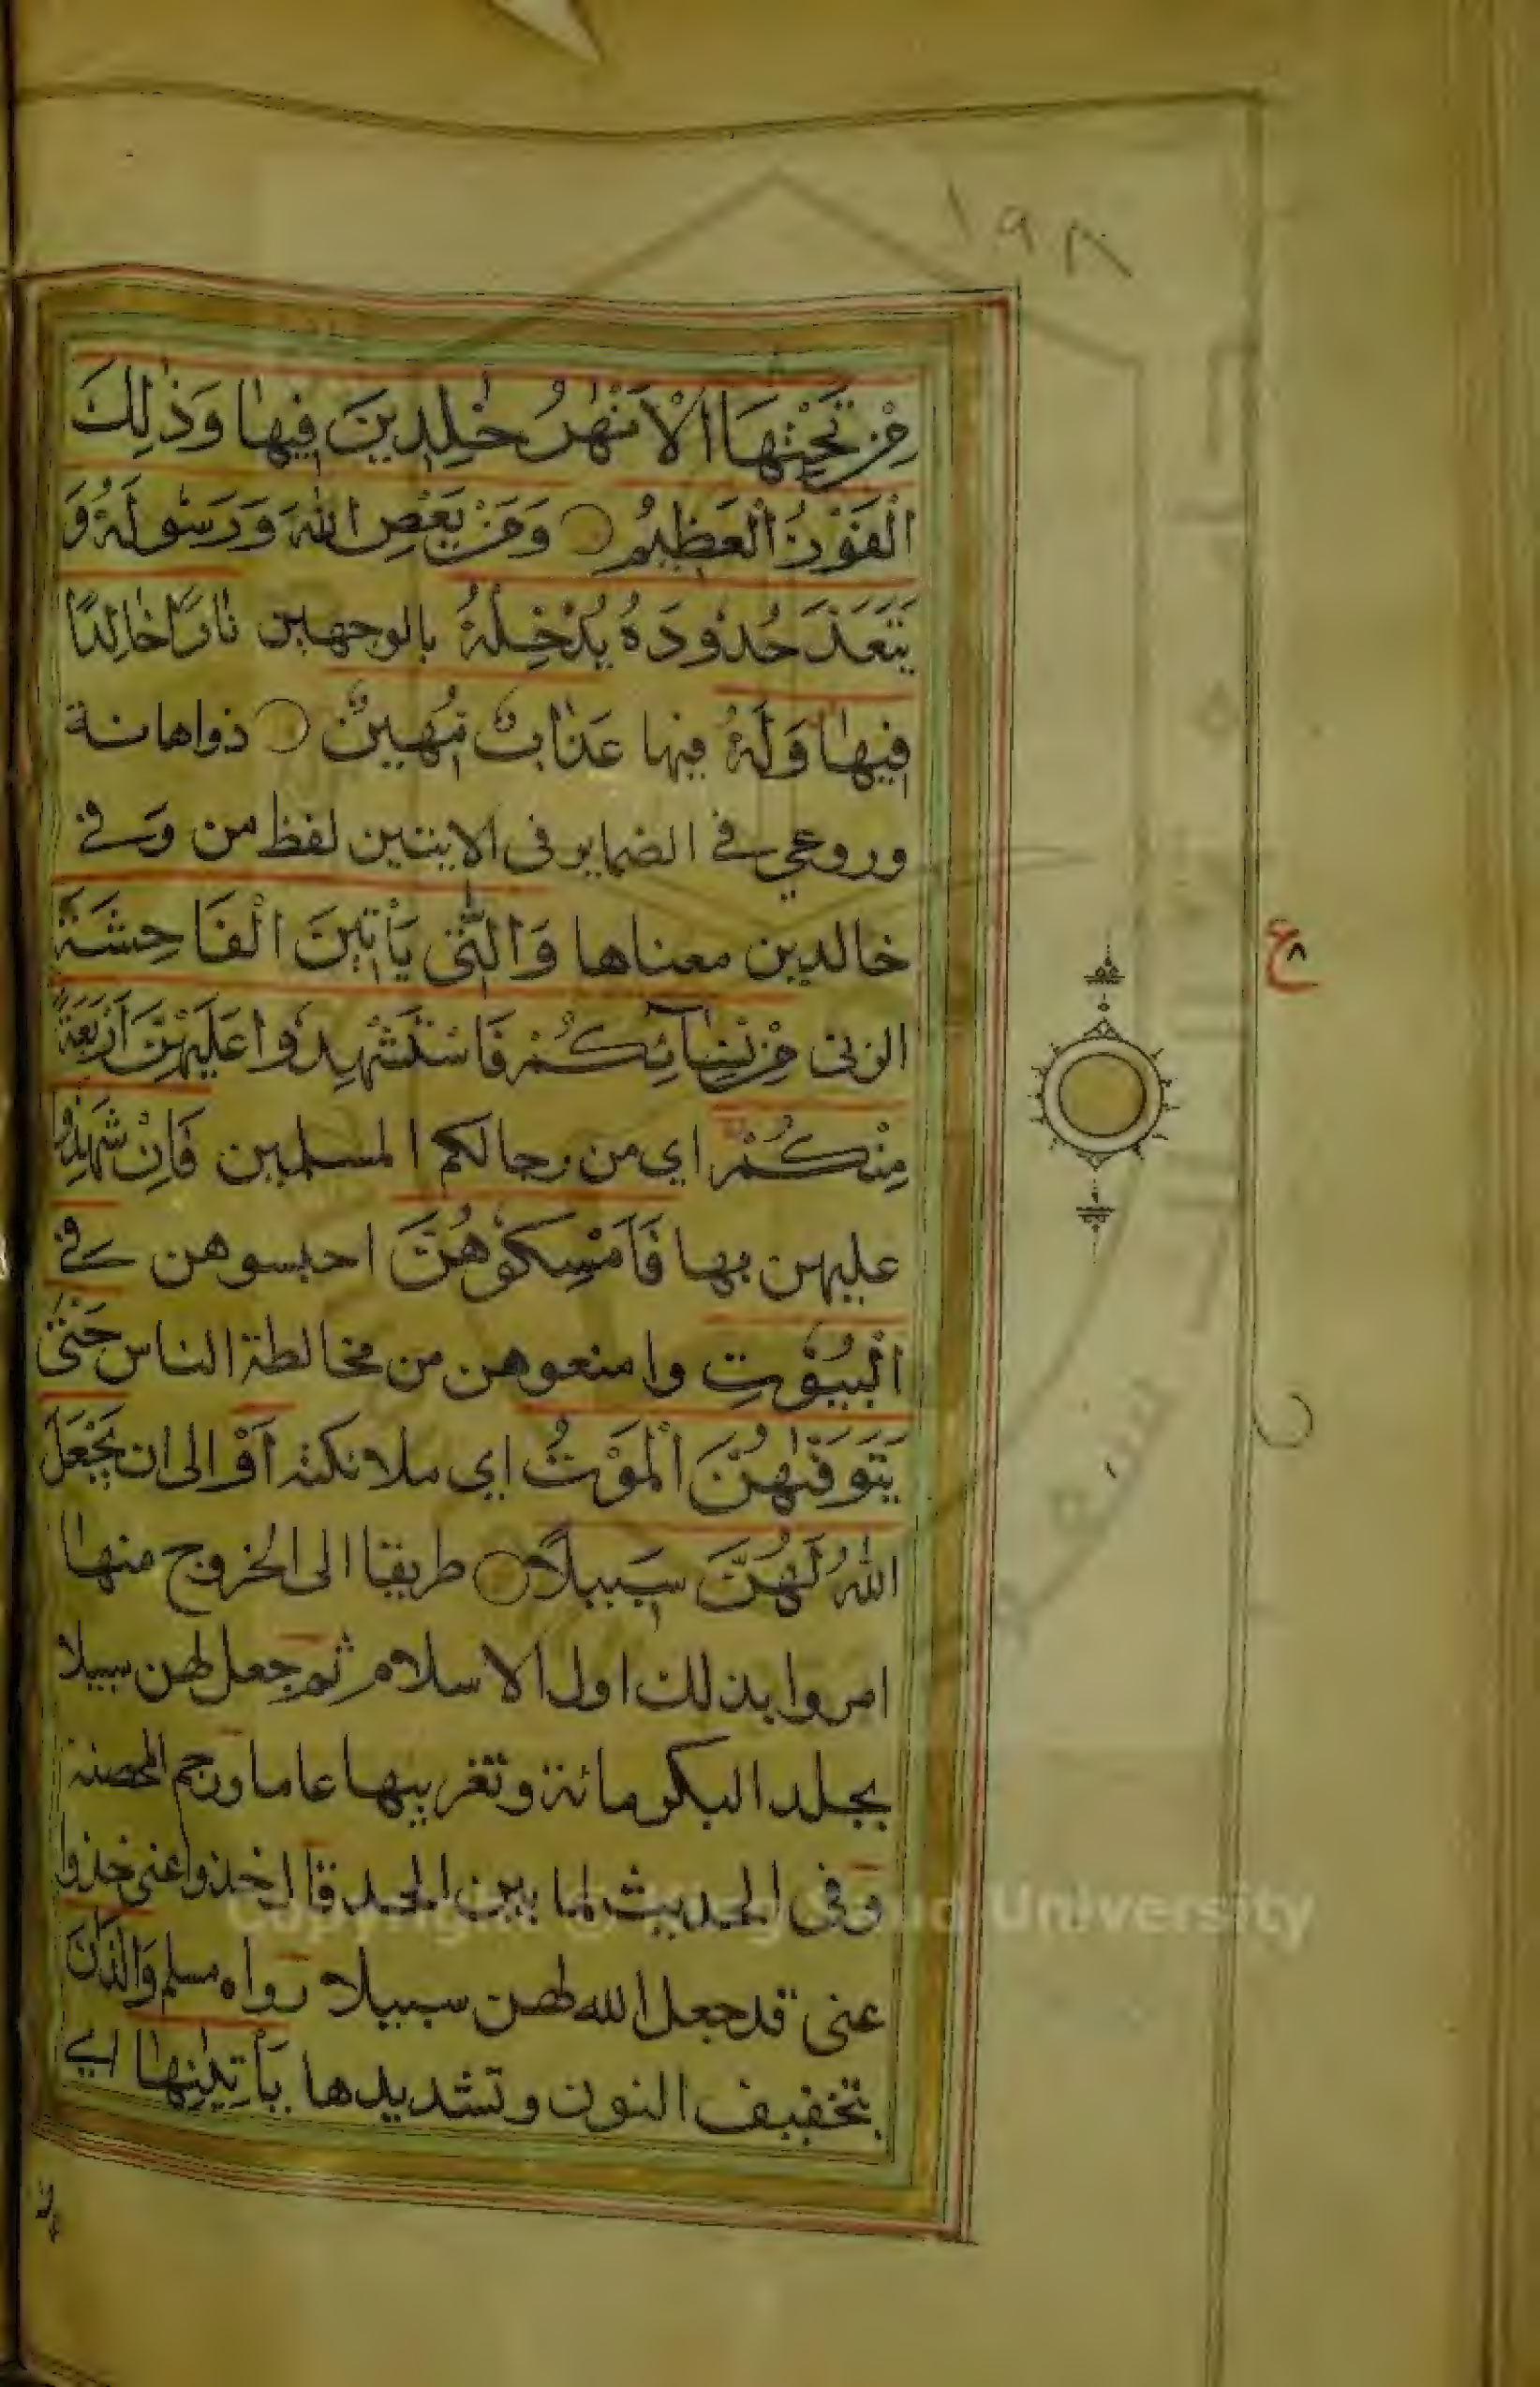 ١٩٨
مِنْ تَحْتِهَا الْاَنْهٰرُ خٰلِدِينَ فِيهٰا وَذٰلِكَ
الْفَوْزُ الْعَظِيمُ وَمَنْ يَعْصِ اللّٰهَ وَرَسُولَهُ وَ
يَتَعَدَّ حُدُودَهُ يُدْخِلْهُ بالوجهين نَارًا خَالِدًا
فِيهٰا وَلَهُ فيها عَذَابٌ مُهِينٌ ذواهانة
وروعي في الضماير في الايتين لفظ من وفي
خالدين معناها وَالّٰتِي يَأْتِينَ الْفَاحِشَةَ
الزنى مِنْ نِسَآئِكُمْ فَاسْتَشْهِدُوا عَلَيْهِنَّ اَرْبَعَةً
مِنْكُمْ اي من رجالكم المسلمين فَاِنْ شَهِدُوا
عليهن بها فَاَمْسِكُوهُنَّ احبسوهن في
الْبُيُوتِ وامنعوهن من مخالطة الناس حَتّٰى
يَتَوَفّٰهُنَّ الْمَوْتُ اي ملائكته اَوْ الى ان يَجْعَلَ
اللّٰهُ لَهُنَّ سَبِيلًا طريقا الى الخروج منها
امروا بذلك اول الاسلام ثم جعل لهن سبيلا
بجلد البكر مائة وتغريبها عاما ورجم المحصنة
وفي الحديث لما بين الحد قال خذوا عني خذوا
عني قد جعل الله لهن سبيلا رواه مسلم وَالَّذَانِ
بتخفيف النون وتشديدها يَأْتِيٰنِهٰا اي
ع
٨
Copyright © King Saud University